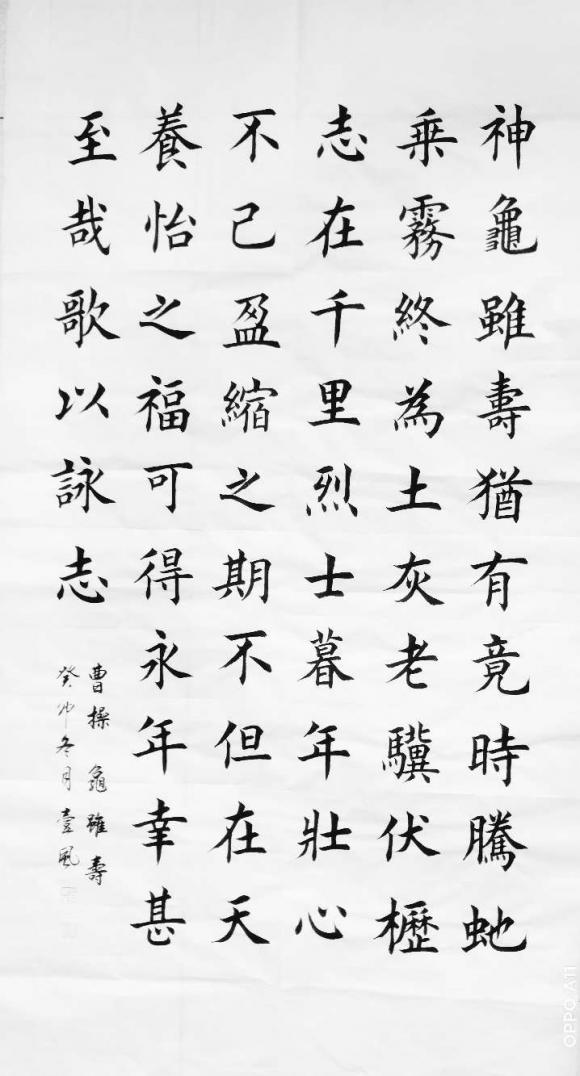 神龜雖壽猶有竟時騰虵
乗霧終為土灰老驥伏櫪
志在千里烈士暮年壯心
不己盈縮之期不但在天
養怡之福可得永年幸甚
至哉歌以詠志
曹操 龜雖壽
癸卯冬月壹風
OPPO A11